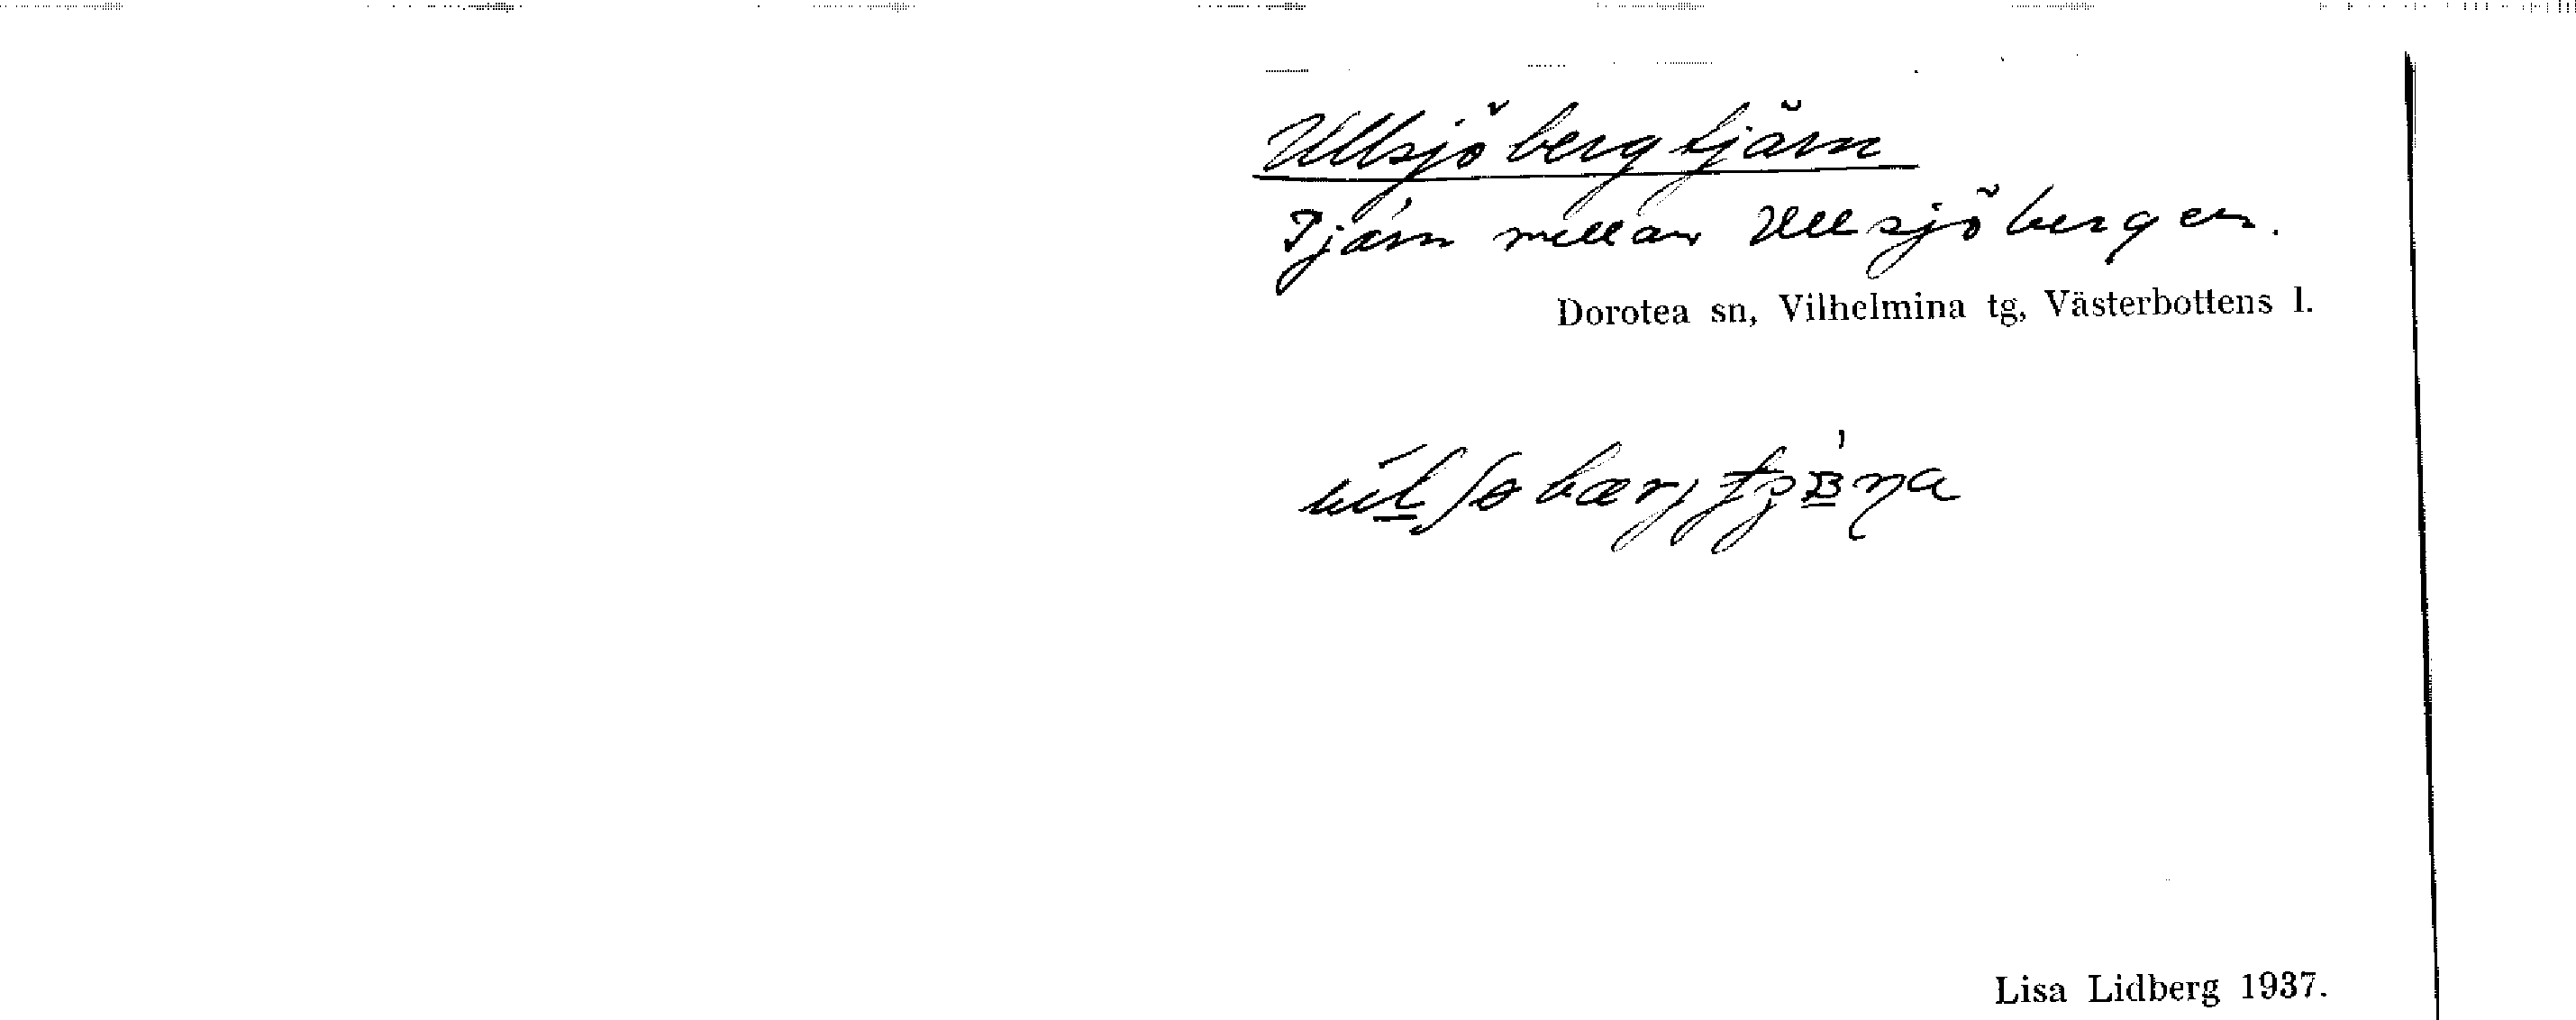 Ullsjöbergtjärn
Tjärn mellan Ullsjöbergen.
Dorotea sn, Vilhelmina tg, Västerbottens l.
Lisa Lidberg 1937.